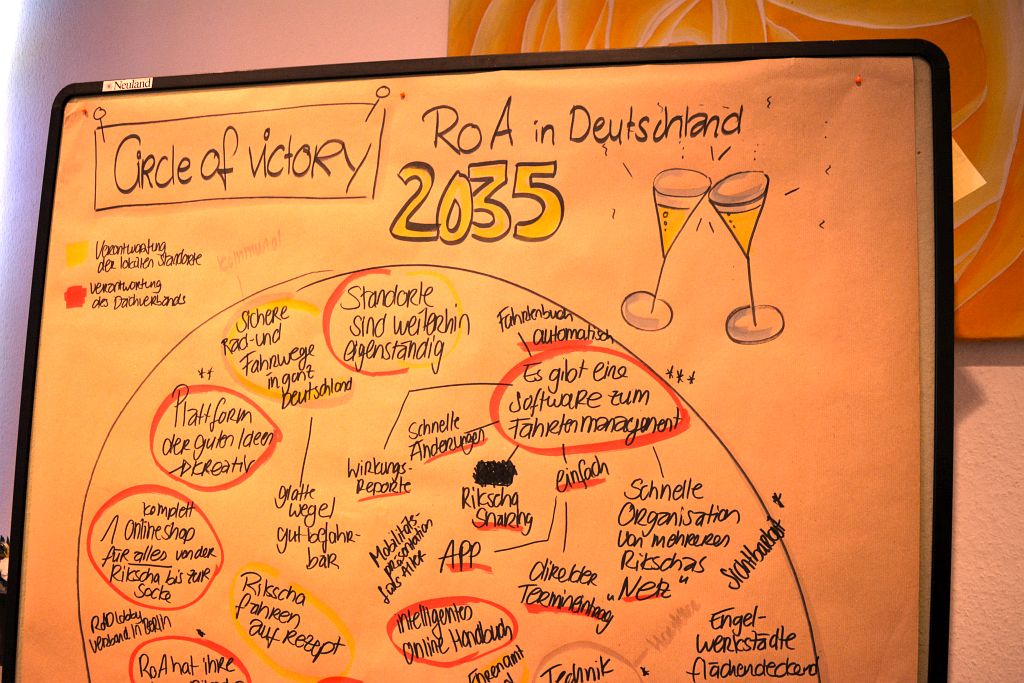 Neuland
Circle of victory
RoA in Deutschland
2035
Verantwortung
der lokalen Standorte
Verantwortung
des Dachverbands
kommunal
Sichere
Rad-und
Fahrwege
in ganz
Deutschland
Standorte
sind weiterhin
eigenständig
Fahrtenbuch
automatisch
**
Plattform
der guten Ideen
kreativ
Es gibt eine
Software zum
Fahrtenmanagement
***
Schnelle
Änderungen
Wirkungs-
Reporte
Rikscha
Sharing
einfach
glatte
wege/
gut befahr-
bar
Schnelle
Organisation
von mehreren
Rikschas
"Netz"
Sichtbarkeit *
komplett
1 Onlineshop
für alles von der
Rikscha bis zur
Socke
Mobilitäts-
präsentation
fürs Alter
APP
direkter
Termineintrag
RoA Lobby
verband in Berlin
Rikscha
fahren
auf Rezept
intelligentes
Online Handbuch
Engel-
werkstädte
flächendeckend
*
RoA hat ihre
Ehrenamt
Technik
*